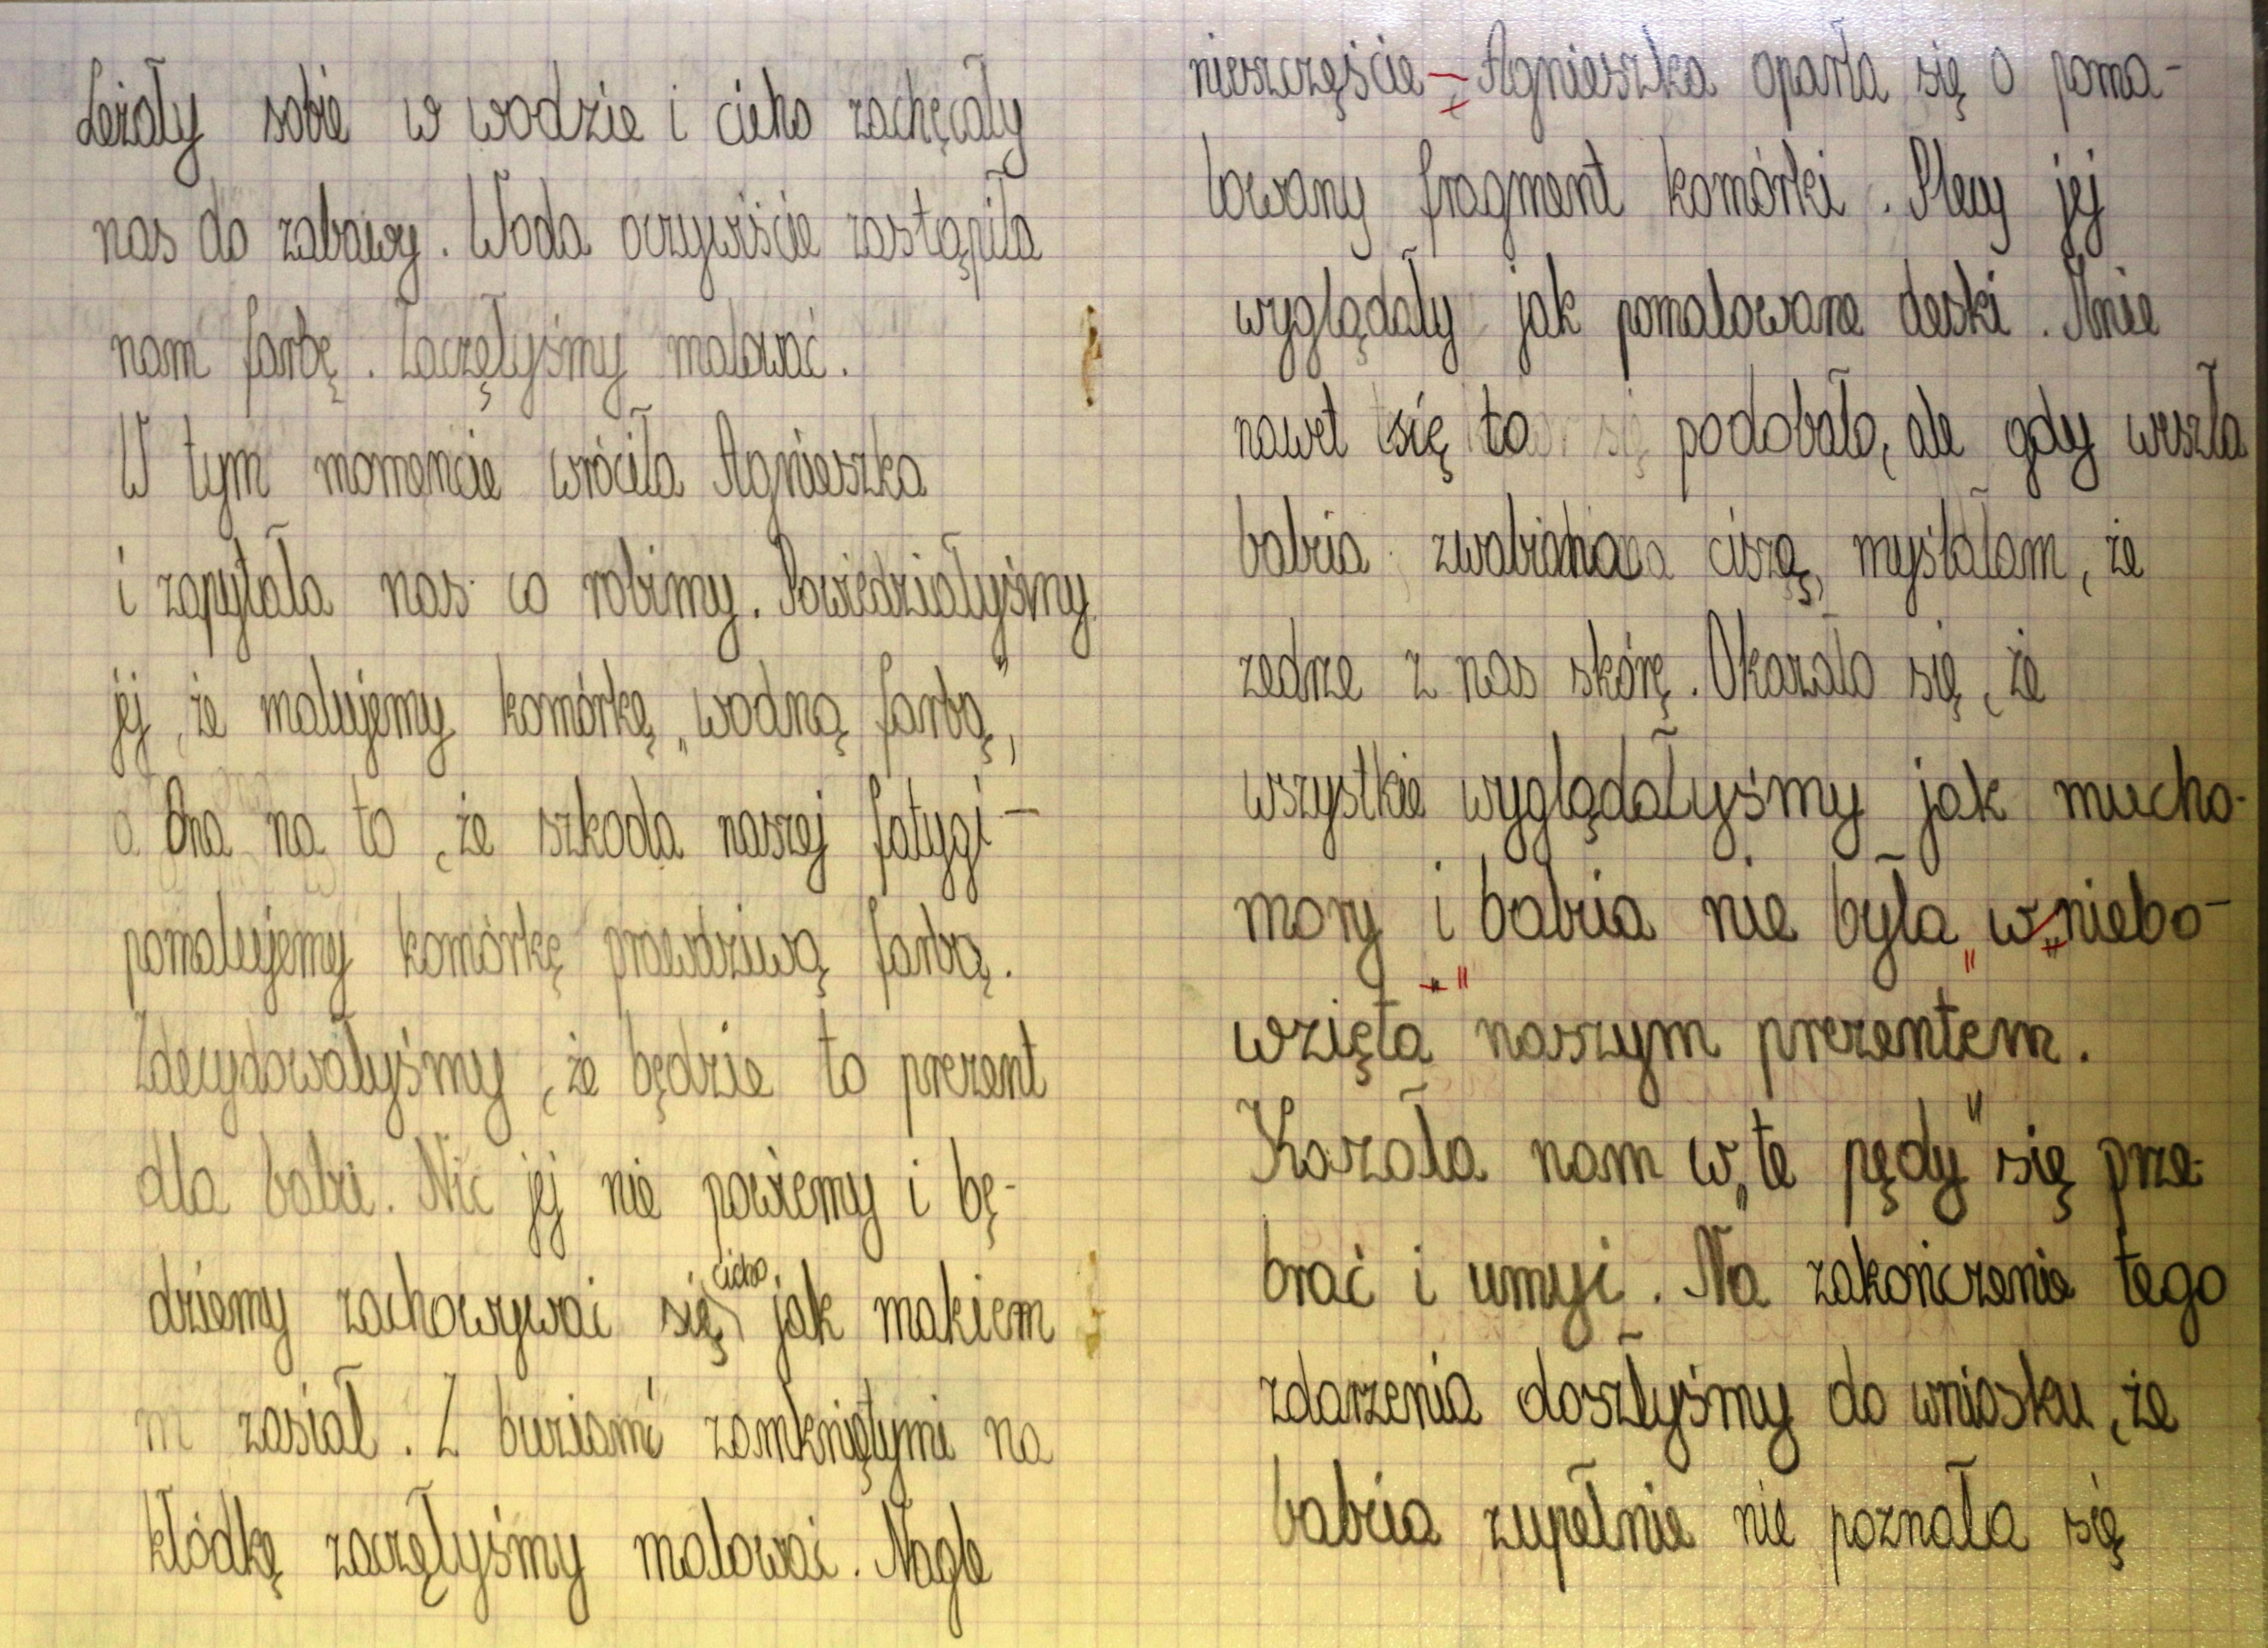 Leżały sobie w wodzie i cicho zachęcały
nas do zabawy. Woda oczywiście zastąpiła
nam farbę. Zaczęłyśmy malować.
W tym momencie wróciła Agnieszka
i zapytała nas co robimy. Powiedziałyśmy
jej, że malujemy komórkę „wodną farbą",
Ona na to, że szkoda naszej fatygi —
pomalujemy komórkę prawdziwą farbą.
Zdecydowałyśmy, że będzie to prezent
dla babci. Nic jej nie powiemy i bę-
dziemy zachowywać się cicho jak makiem
zasiał. Z buziami zamkniętymi na
kłódkę zaczęłyśmy malować. Nagle
nieszczęście - Agnieszka oparła się o poma-
lowany fragment komórki. Plecy jej
wyglądały jak pomalowane deski. Mnie
nawet się to podobało, ale gdy weszła
babcia zwabiona ciszą, myślałam, że
zedrze z nas skórę. Okazało się, że
wszystkie wyglądałyśmy jak mucho-
mory i babcia nie była „wniebo-
wzięta" naszym prezentem.
Kazała nam w „te pędy" się prze-
brać i umyć. Na zakończenie tego
zdarzenia doszłyśmy do wniosku, że
babcia zupełnie nie poznała się